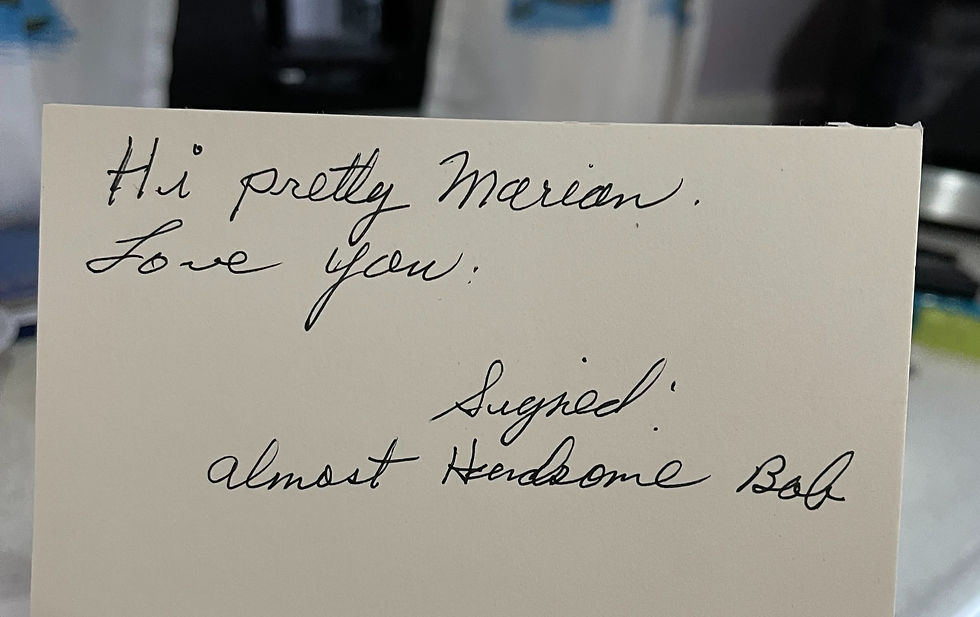 Hi pretty Marian.
Love you.
Signed:
almost Handsome Bob